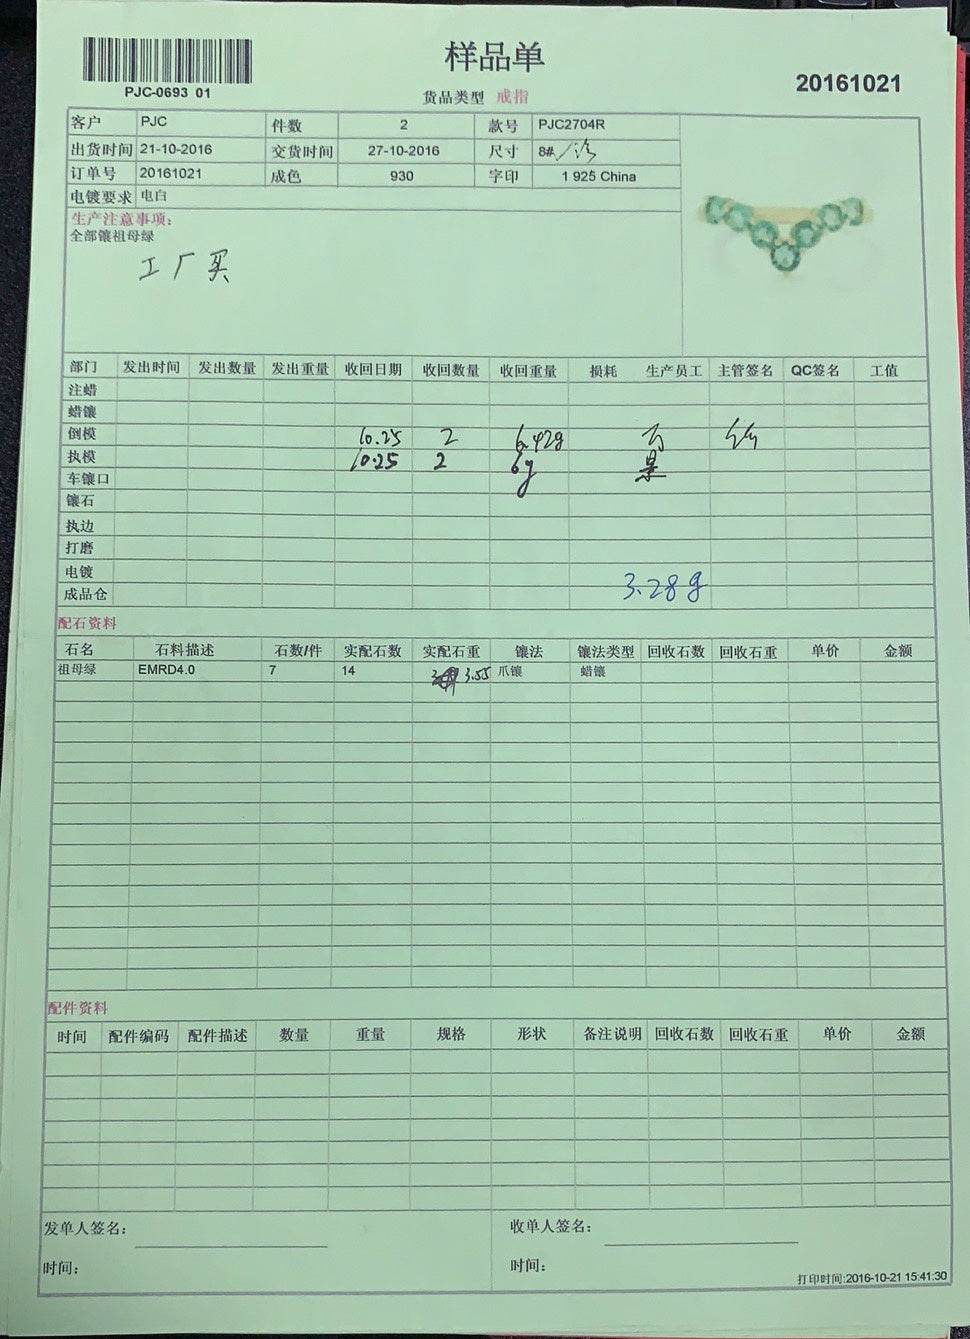 样品单
PJC-0693 01
20161021
货品类型 戒指
客户 PJC 件数 2 款号 PJC2704R
出货时间 21-10-2016 交货时间 27-10-2016 尺寸 8#
订单号 20161021 成色 930 字印 1 925 China
电镀要求 电白
生产注意事项:
全部镶祖母绿
工厂买
部门 发出时间 发出数量 发出重量 收回日期 收回数量 收回重量 损耗 生产员工 主管签名 QC签名 工值
注蜡
蜡镶
倒模 10.25 2 6.42g
执模 10.25 2 6g
车镶口
镶石
执边
打磨
电镀
成品仓 3.28g
配石资料
石名 石料描述 石数/件 实配石数 实配石重 镶法 镶法类型 回收石数 回收石重 单价 金额
祖母绿 EMRD4.0 7 14 3.55 爪镶 蜡镶
配件资料
时间 配件编码 配件描述 数量 重量 规格 形状 备注说明 回收石数 回收石重 单价 金额
发单人签名: 收单人签名:
时间: 时间:
打印时间:2016-10-21 15:41:30